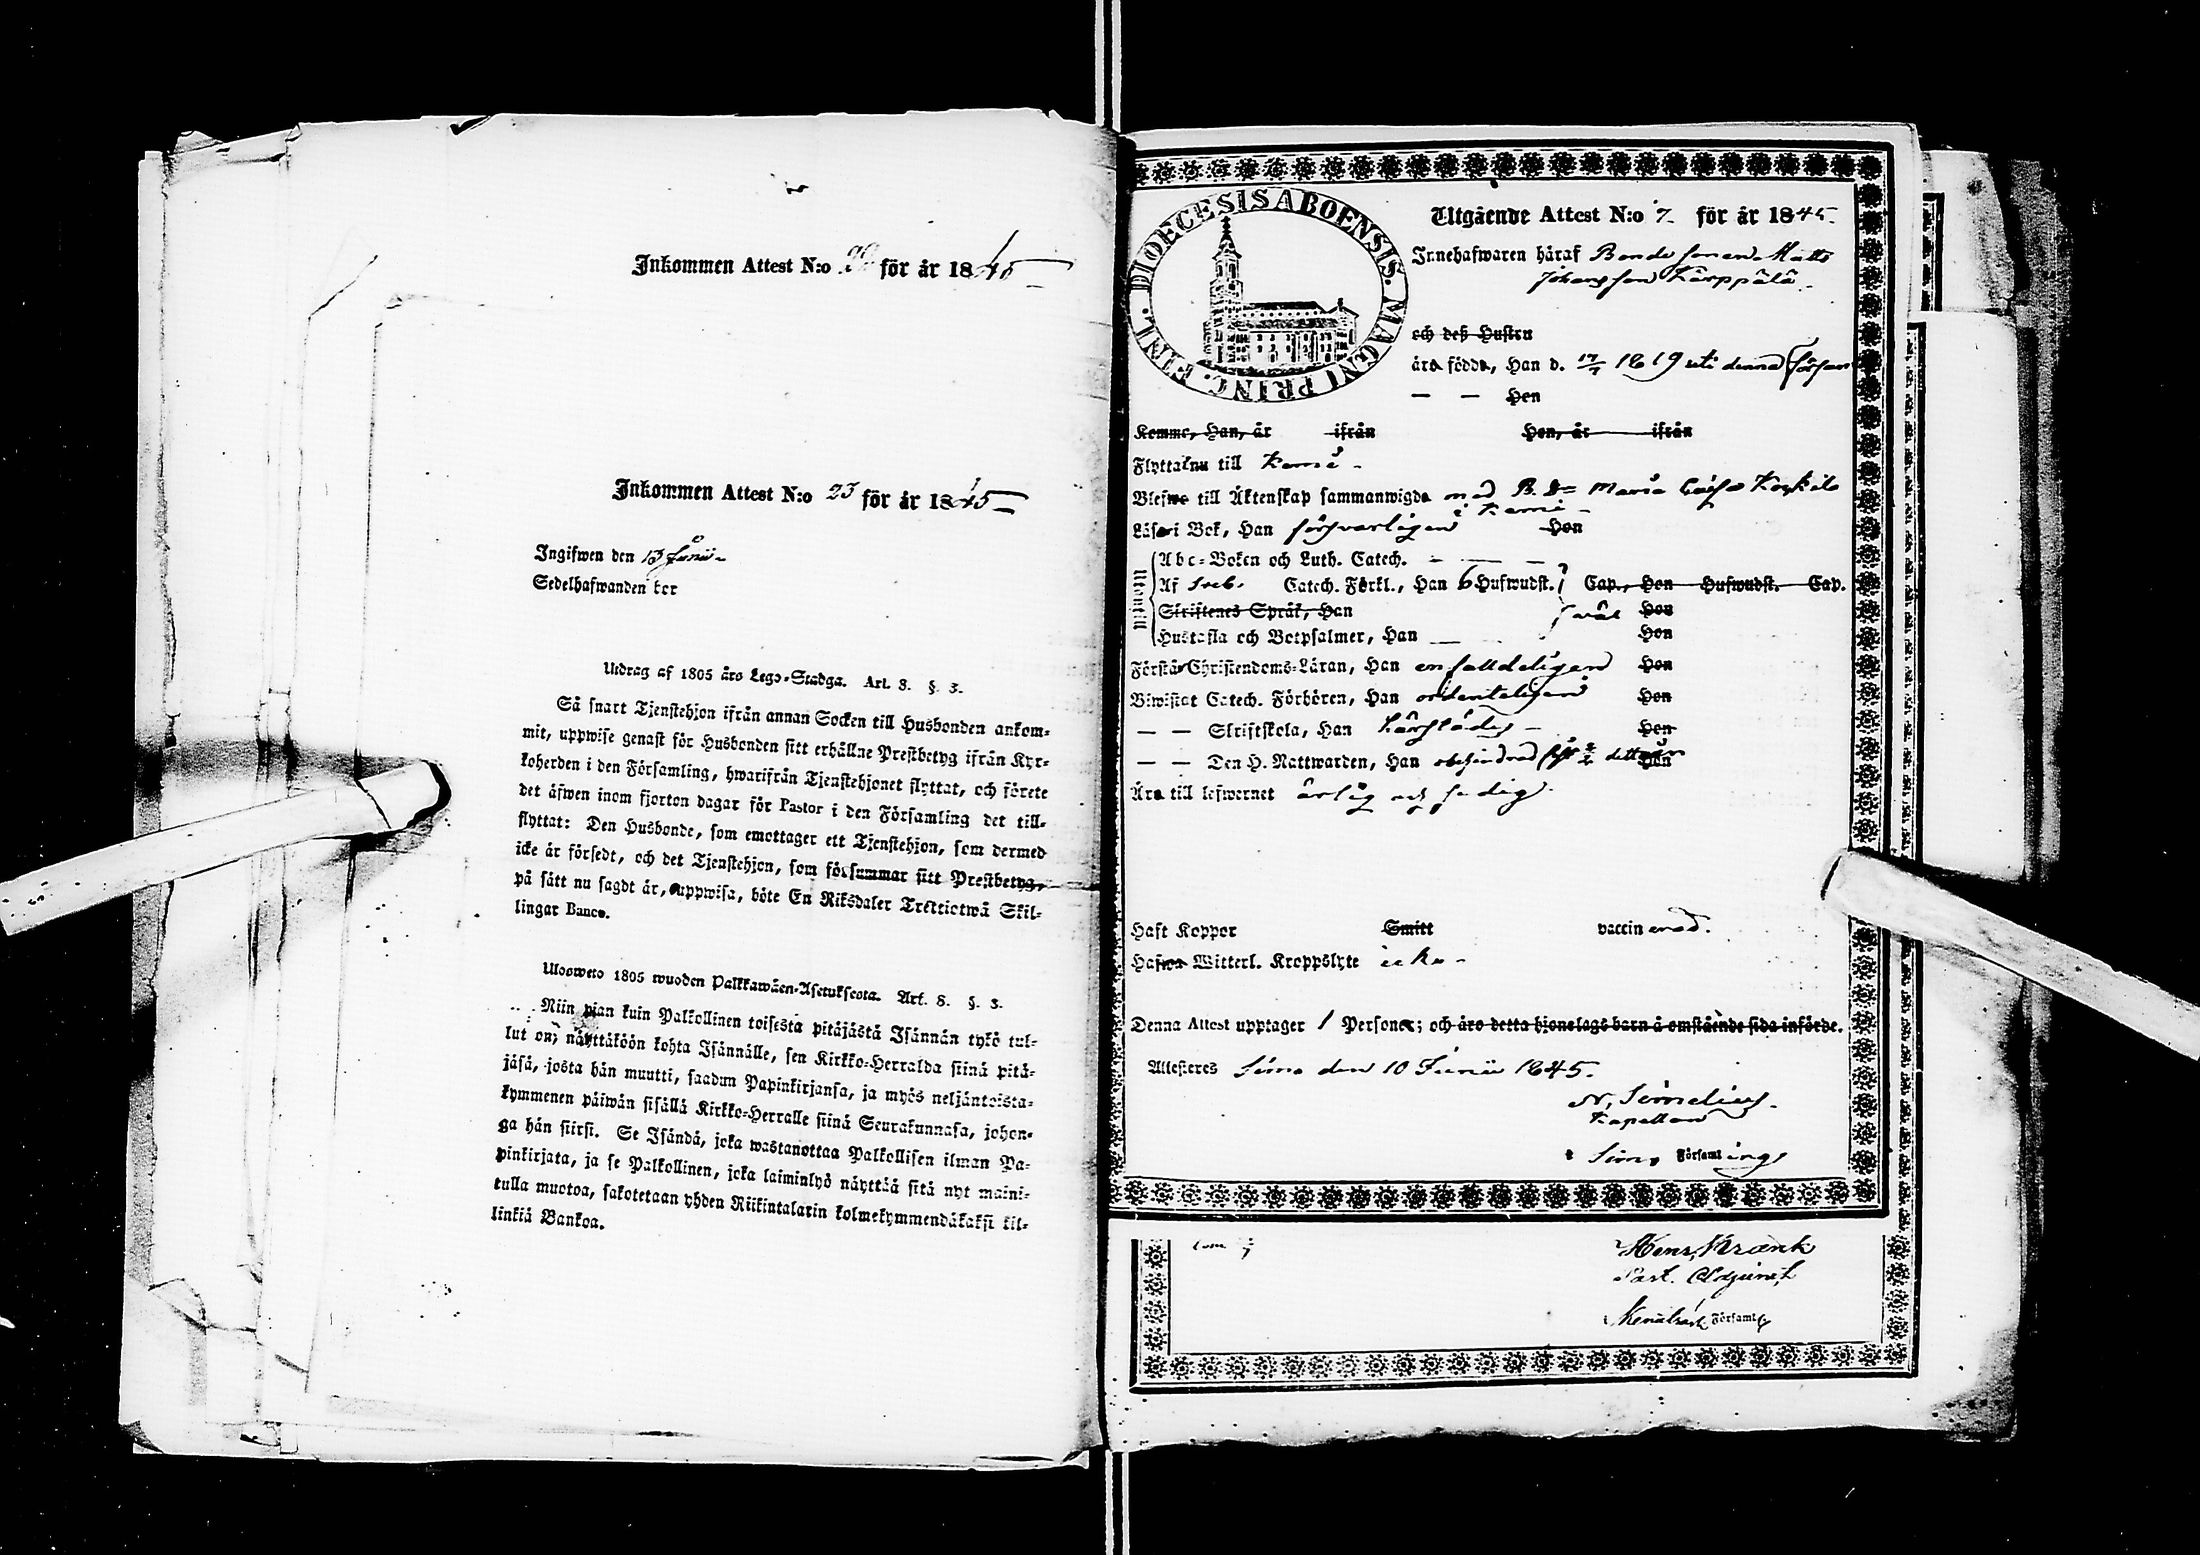 Inkommen Attest N:o 22 för år 1845
Inkommen Attest N:o 23 för år 1845
Ingifwen den 13 Junii
Sedelhafwanden bor
Utdrag af 1805 års Lego-Stadga. Art. 8. §. 3.
Så snart Tjenstehjon ifrån annan Socken till Husbonden ankom-
mit, uppwise genast för Husbonden sitt erhållne Prestbetyg ifrån Kyr-
koherden i den Församling, hwarifrån Tjenstehjonet flyttat, och förete
det äfwen inom fjorton dagar för Pastor i den Församling det till-
flyttat: Den Husbonde, som emottager ett Tjenstehjon, som dermed
icke är försedt, och det Tjenstehjon, som försummar sitt Prestbetyg,
på sätt nu sagdt är, uppwisa, böte En Riksdaler Trettiotwå Skil-
lingar Banco.
Ulosweto 1805 wuoden Palkkawäen-Asetuksesta. Art. 8. §. 3.
Niin pian kuin Palkollinen toisesta pitäjästä Isännän tykö tul-
lut on, näyttäköön kohta Isännälle, sen Kirkko-Herralda siinä pitä-
jäsä, josta hän muutti, saadun Papinkirjansa, ja myös neljäntoista-
kymmenen päiwän sisällä Kirkko-Herralle siinä Seurakunnasa, johon-
ga hän siirsi. Se Isändä, joka wastanottaa Palkollisen ilman Pa-
pinkirjata, ja se Palkollinen, joka laiminlyö näyttää sitä nyt maini-
tulla muotoa, sakotetaan yhden Riikintalarin kolmekymmendäkaksi kil-
linkiä Bankoa.
DIOECESIS ABOENSIS. MAGNI PRINC. FINL.
Utgående Attest N:o 7 för år 1845
Innehafwaren häraf Bonde sonen Matts
Johansson Kärppälä
och deß Hustru
äro födde, Han d. 17/7 1819 uti denna Försam
— — Hon
Komme, Han, år ifrån Hon, år ifrån
Flytta nu till Kemi
Blefwe till Äktenskap sammanwigde med B. dr Maria Caisa Koskilo
i Kemi
Läser i Bok, Han försvarligen Hon
Utantill
Abc-Boken och Luth. Catech. — — —
Af Sveb. Catech. Förkl., Han 6 Hufwudst. Cap., Hon Hufwudst. Cap.
Skriftenes Språk, Han svål Hon
Hustafla och Botpsalmer, Han — Hon
Förstår Christendoms-Läran, Han enfalldeligen Hon
Biwistat Catech. Förhören, Han ordenteligen Hon
— — Skriftskola, Han Hon
— — Den H. Nattwarden, Han obehindrad detta år Hon
Äro till lefwernet ärlig och sedig
Haft Koppor Smitt vaccinerad.
Hafwa Witterl. Kroppslyte icke
Denna Attest upptager 1 Personer; och äro detta hjonelags barn å omstående sida införde.
Attesteras Simo den 10 Junii 1845.
N. Simelius
Kapellan
i Simo Församlings
Henr. Krank
Past. Adjunct
Församlg